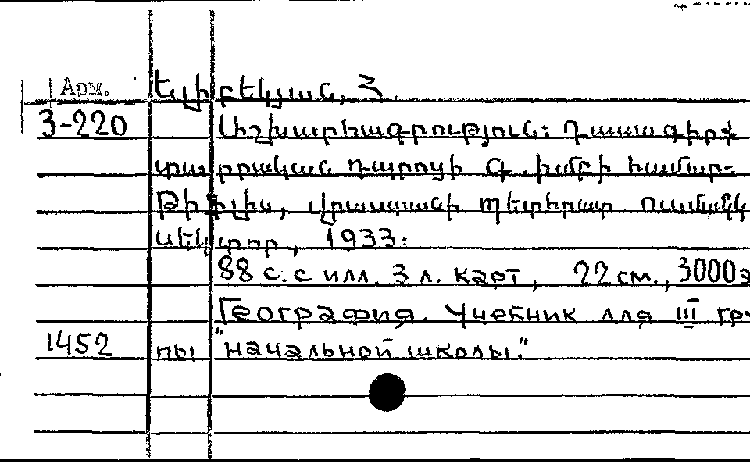 Арм. Ելիբեկյան, Հ.
3-220 Աշխարհագրություն: Դասագիրք
տարրական դպրոցի Գ. խմբի համար-
Թիֆլիս, վրաստանի պետհրատ ուսմանկ
սեկտոր, 1933:
88 с. с илл. 3 л. карт, 22 см., 3000э
География. Учебник для III гру-
1452 пы "начальной школы."